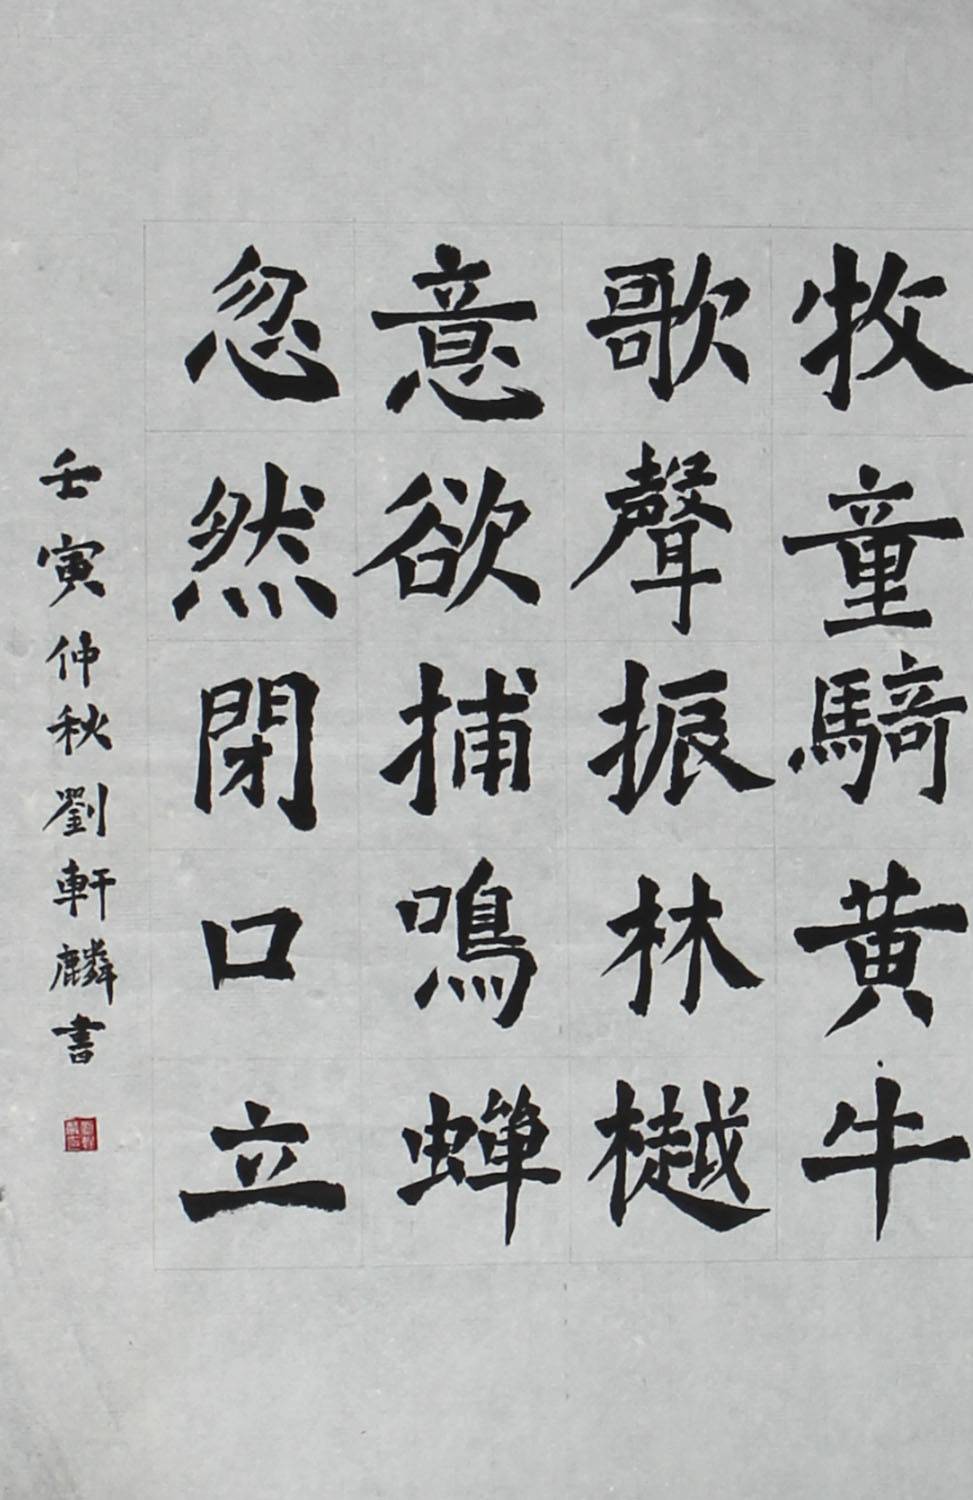 牧童騎黃牛
歌聲振林樾
意欲捕鳴蟬
忽然閉口立
壬寅仲秋劉軒麟書